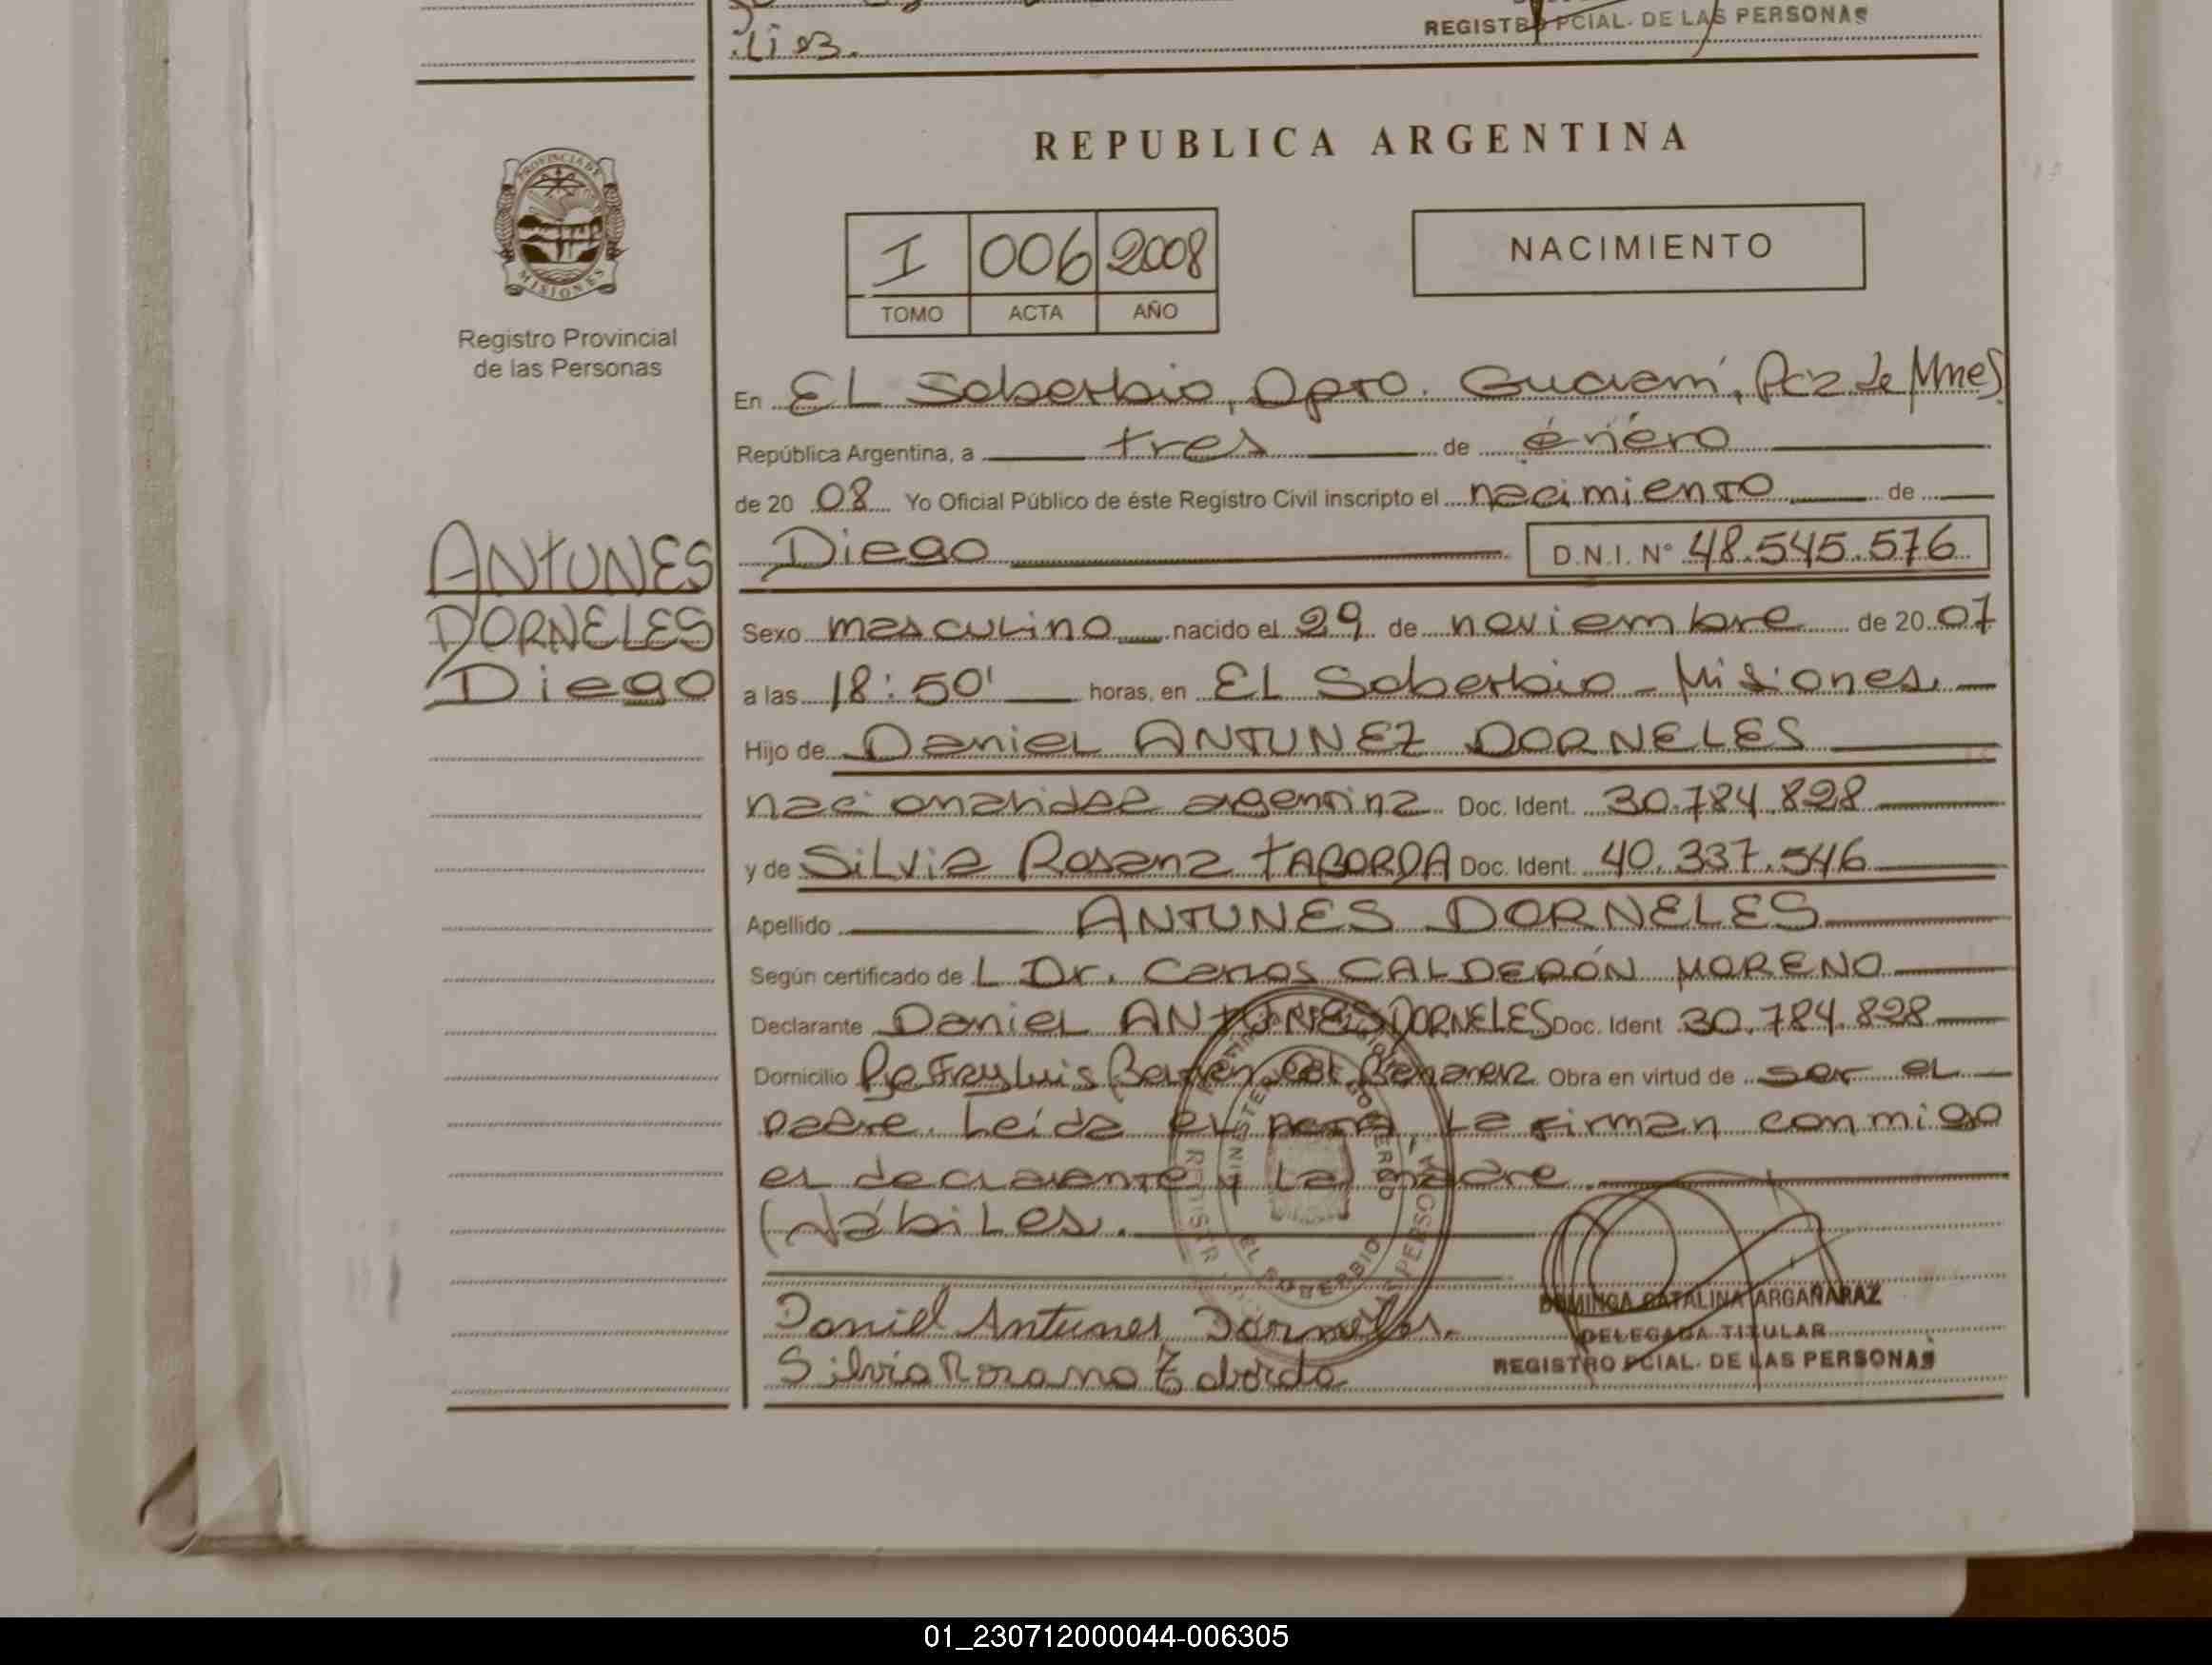 lias.
REGISTRO PCIAL. DE LAS PERSONAS
REPUBLICA ARGENTINA
PROVINCIA DE
MISIONES
Registro Provincial
de las Personas
I 006 2008
TOMO ACTA AÑO
NACIMIENTO
En EL Soberbio, Dpto. Guaraní, Pcia de Mnes
República Argentina, a tres de enero
de 2008 Yo Oficial Público de éste Registro Civil inscripto el nacimiento de
ANTUNES
DORNELES
Diego
Diego D.N.I. N° 48.545.576
Sexo masculino nacido el 29 de noviembre de 2007
a las 18:50' horas, en EL Soberbio - Misiones.
Hijo de Daniel ANTUNEZ DORNELES
nacionalidad argentina Doc. Ident. 30.784.828
y de Silvia Rosana TABORDA Doc. Ident. 40.337.546
Apellido ANTUNES DORNELES
Según certificado de L Dr. Carlos CALDERÓN MORENO
Declarante Daniel ANTUNES DORNELES Doc. Ident 30.784.828
Domicilio Fray Luis Obra en virtud de ser el
padre. Leída el acta, la firman conmigo
el declarante y la madre.
Daniel Antunes Dorneles.
Silvia Rosana Taborda
MINISTERIO GOBIERNO
EL SOBERBIO
DOMINGA CATALINA ARGAÑARAZ
DELEGADA TITULAR
REGISTRO PCIAL. DE LAS PERSONAS
01_230712000044-006305